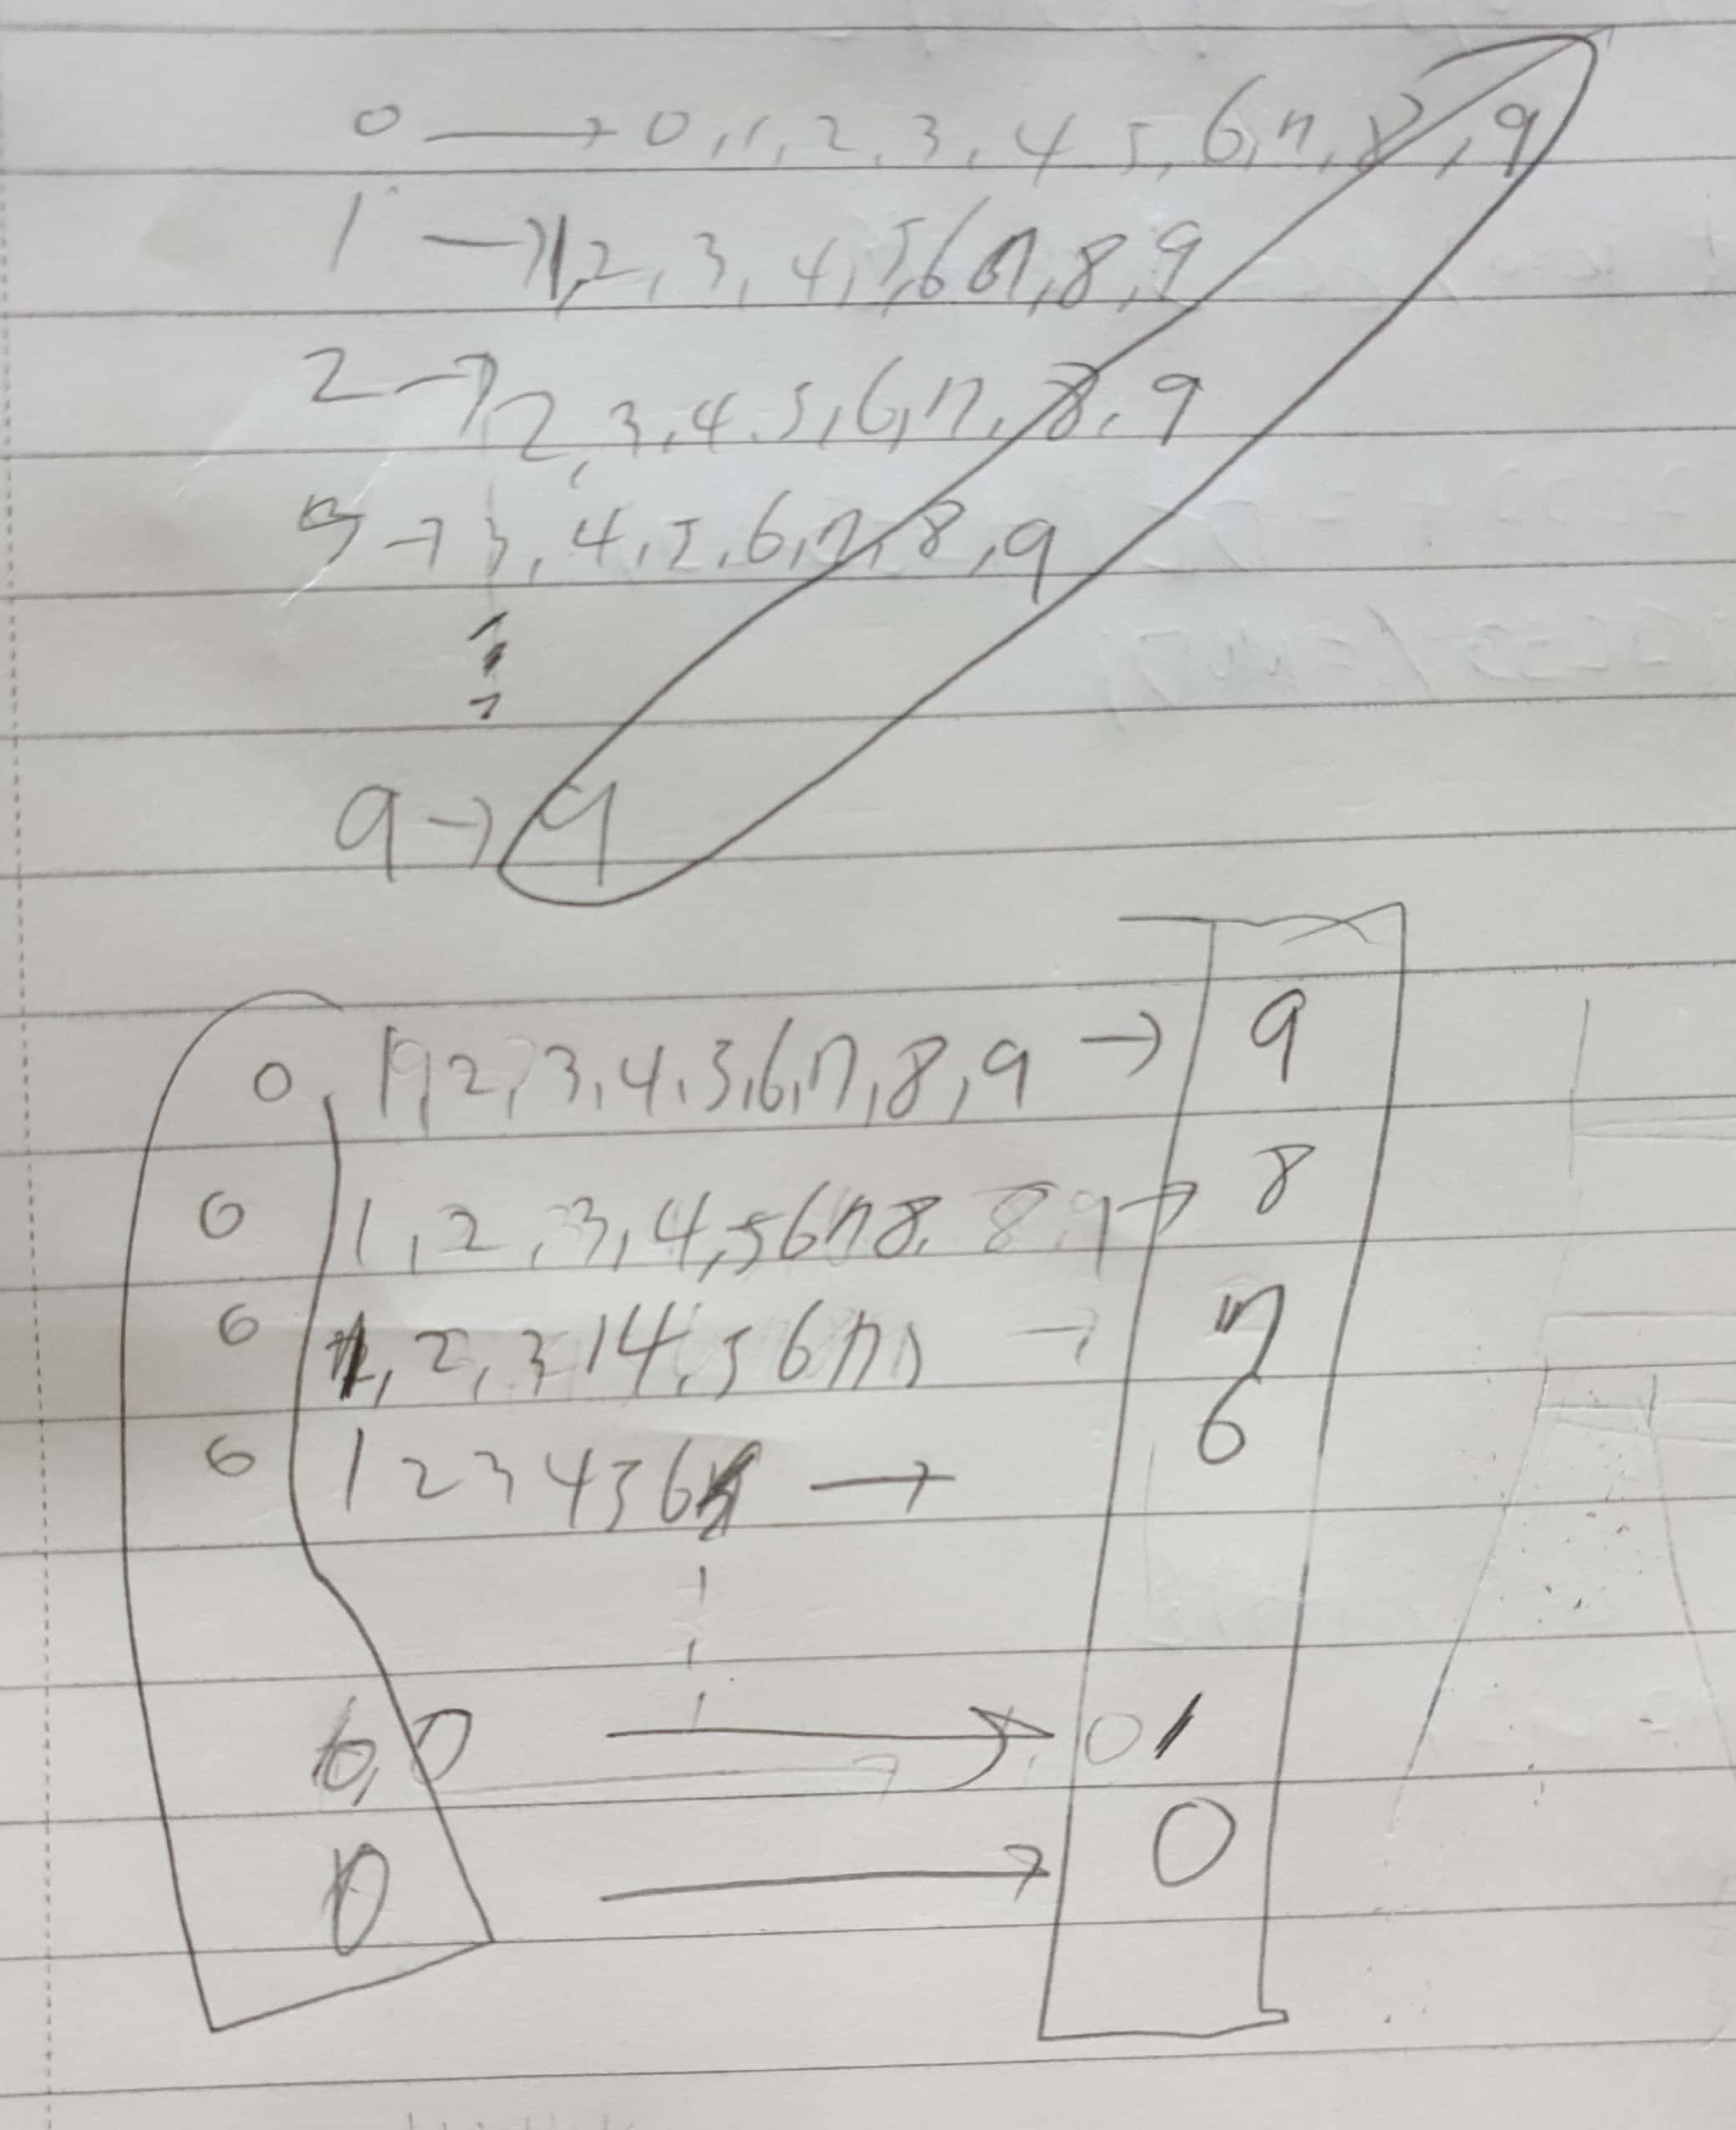 0 → 0, 1, 2, 3, 4 5, 6, 7, 8, 9
1 → 1, 2, 3, 4, 5, 6 7, 8, 9
2 → 2, 3, 4. 5, 6, 7, 8, 9
3 → 3, 4, 5, 6, 7, 8, 9
9 → 9
0, 1, 2, 3, 4, 5, 6, 7, 8, 9 → 9
0 1, 2, 3, 4, 5 6 7 8. 8, 9 → 8
0 1, 2, 3, 4, 5 6 7, → 7
0 1 2 3 4 5 6 → 6
0, 0 → 0 1
0 → 0